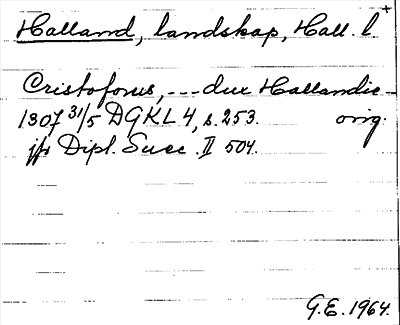 Halland, landskap, Hall. l +
Cristoforus, --- dux Hallandie -
1307 31/5 DGKL 4, s. 253. orig.
jfr Dipl. Suec. II 504.
G.E. 1964.